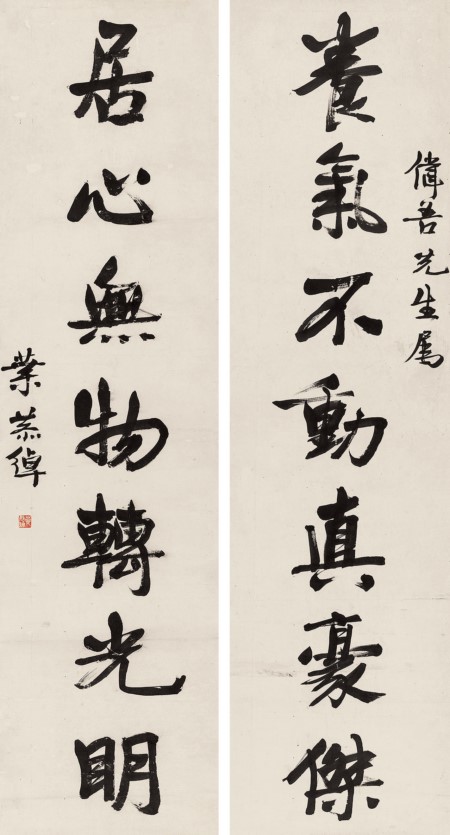 偉吾先生属
養氣不動真豪傑
居心無物轉光明
葉恭綽